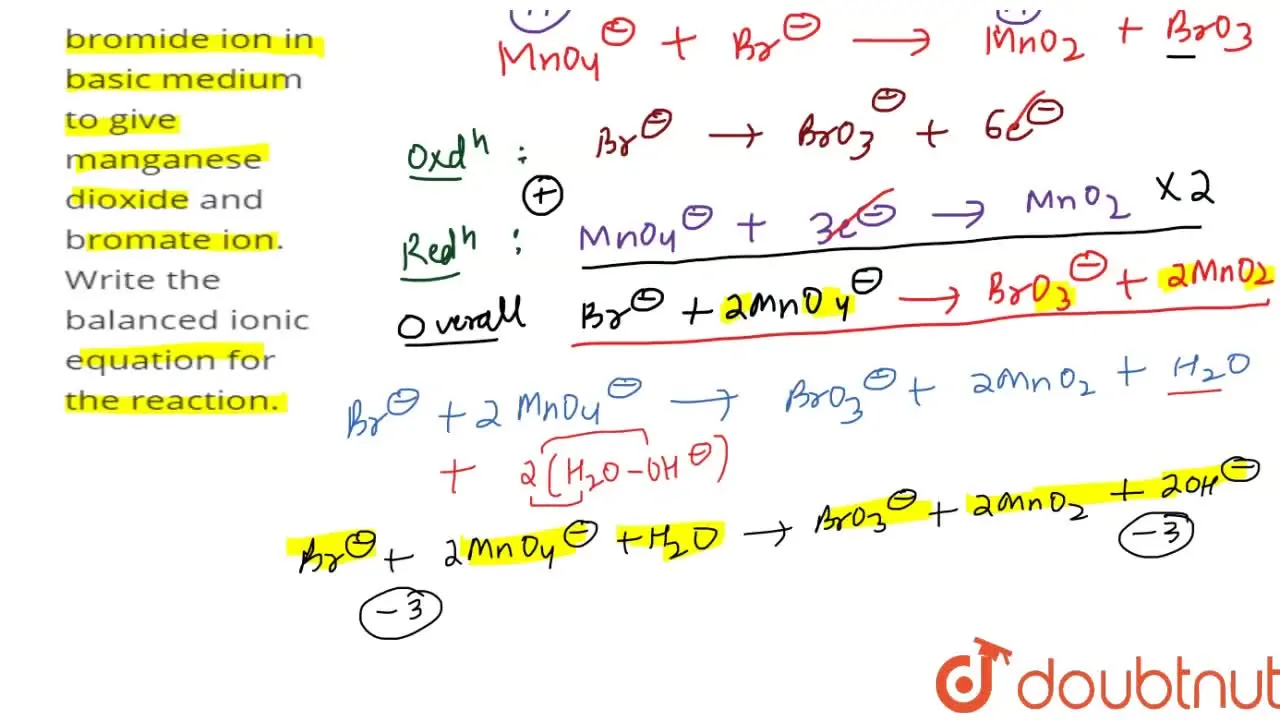 bromide ion in
basic medium
to give
manganese
dioxide and
bromate ion.
Write the
balanced ionic
equation for
the reaction.
MnO4⊖ + Br⊖ → MnO2 + BrO3
Oxdⁿ : Br⊖ → BrO3⊖ + 6e⊖
⊕
Redⁿ : MnO4⊖ + 3e⊖ → MnO2 ×2
Overall Br⊖ + 2MnO4⊖ → BrO3⊖ + 2MnO2
Br⊖ + 2MnO4⊖ → BrO3⊖ + 2MnO2 + H2O
+ 2(H2O-OH⊖)
Br⊖ + 2MnO4⊖ + H2O → BrO3⊖ + 2MnO2 + 2OH⊖
-3 -3
doubtnut